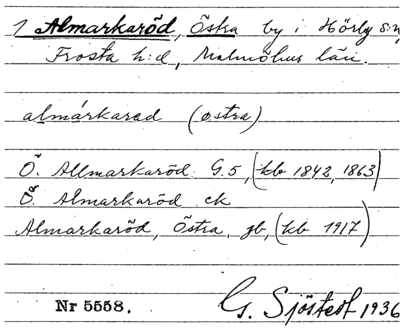 1 Almarkaröd, Östra by i Hörby s:n,
Frosta h:d, Malmöhus län.
almárkarad (östra)
Ö. Allmarkaröd G.5, (kb 1842, 1863)
Ö. Almarkaröd ek
Almarkaröd, Östra, gb, (kb 1917)
Nr 5558. G. Sjöstedt 1936